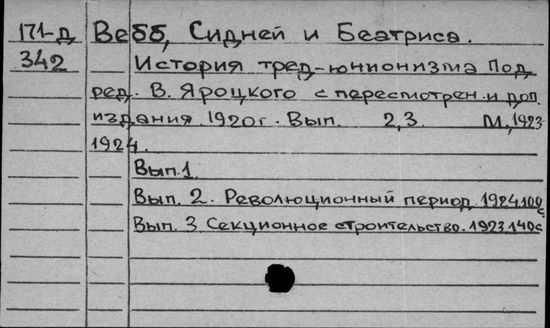 171-д Вебб, Сидней и Беатриса.
342 История тред-юнионизма Под
ред. В. Яроцкого с пересмотрен. и доп.
издания 1920г. Вып. 2,3. М., 1923-
1924.
Вып. 1.
Вып. 2. Революционный период. 1924 100с.
Вып. 3 Секционное строительство. 1923. 140с